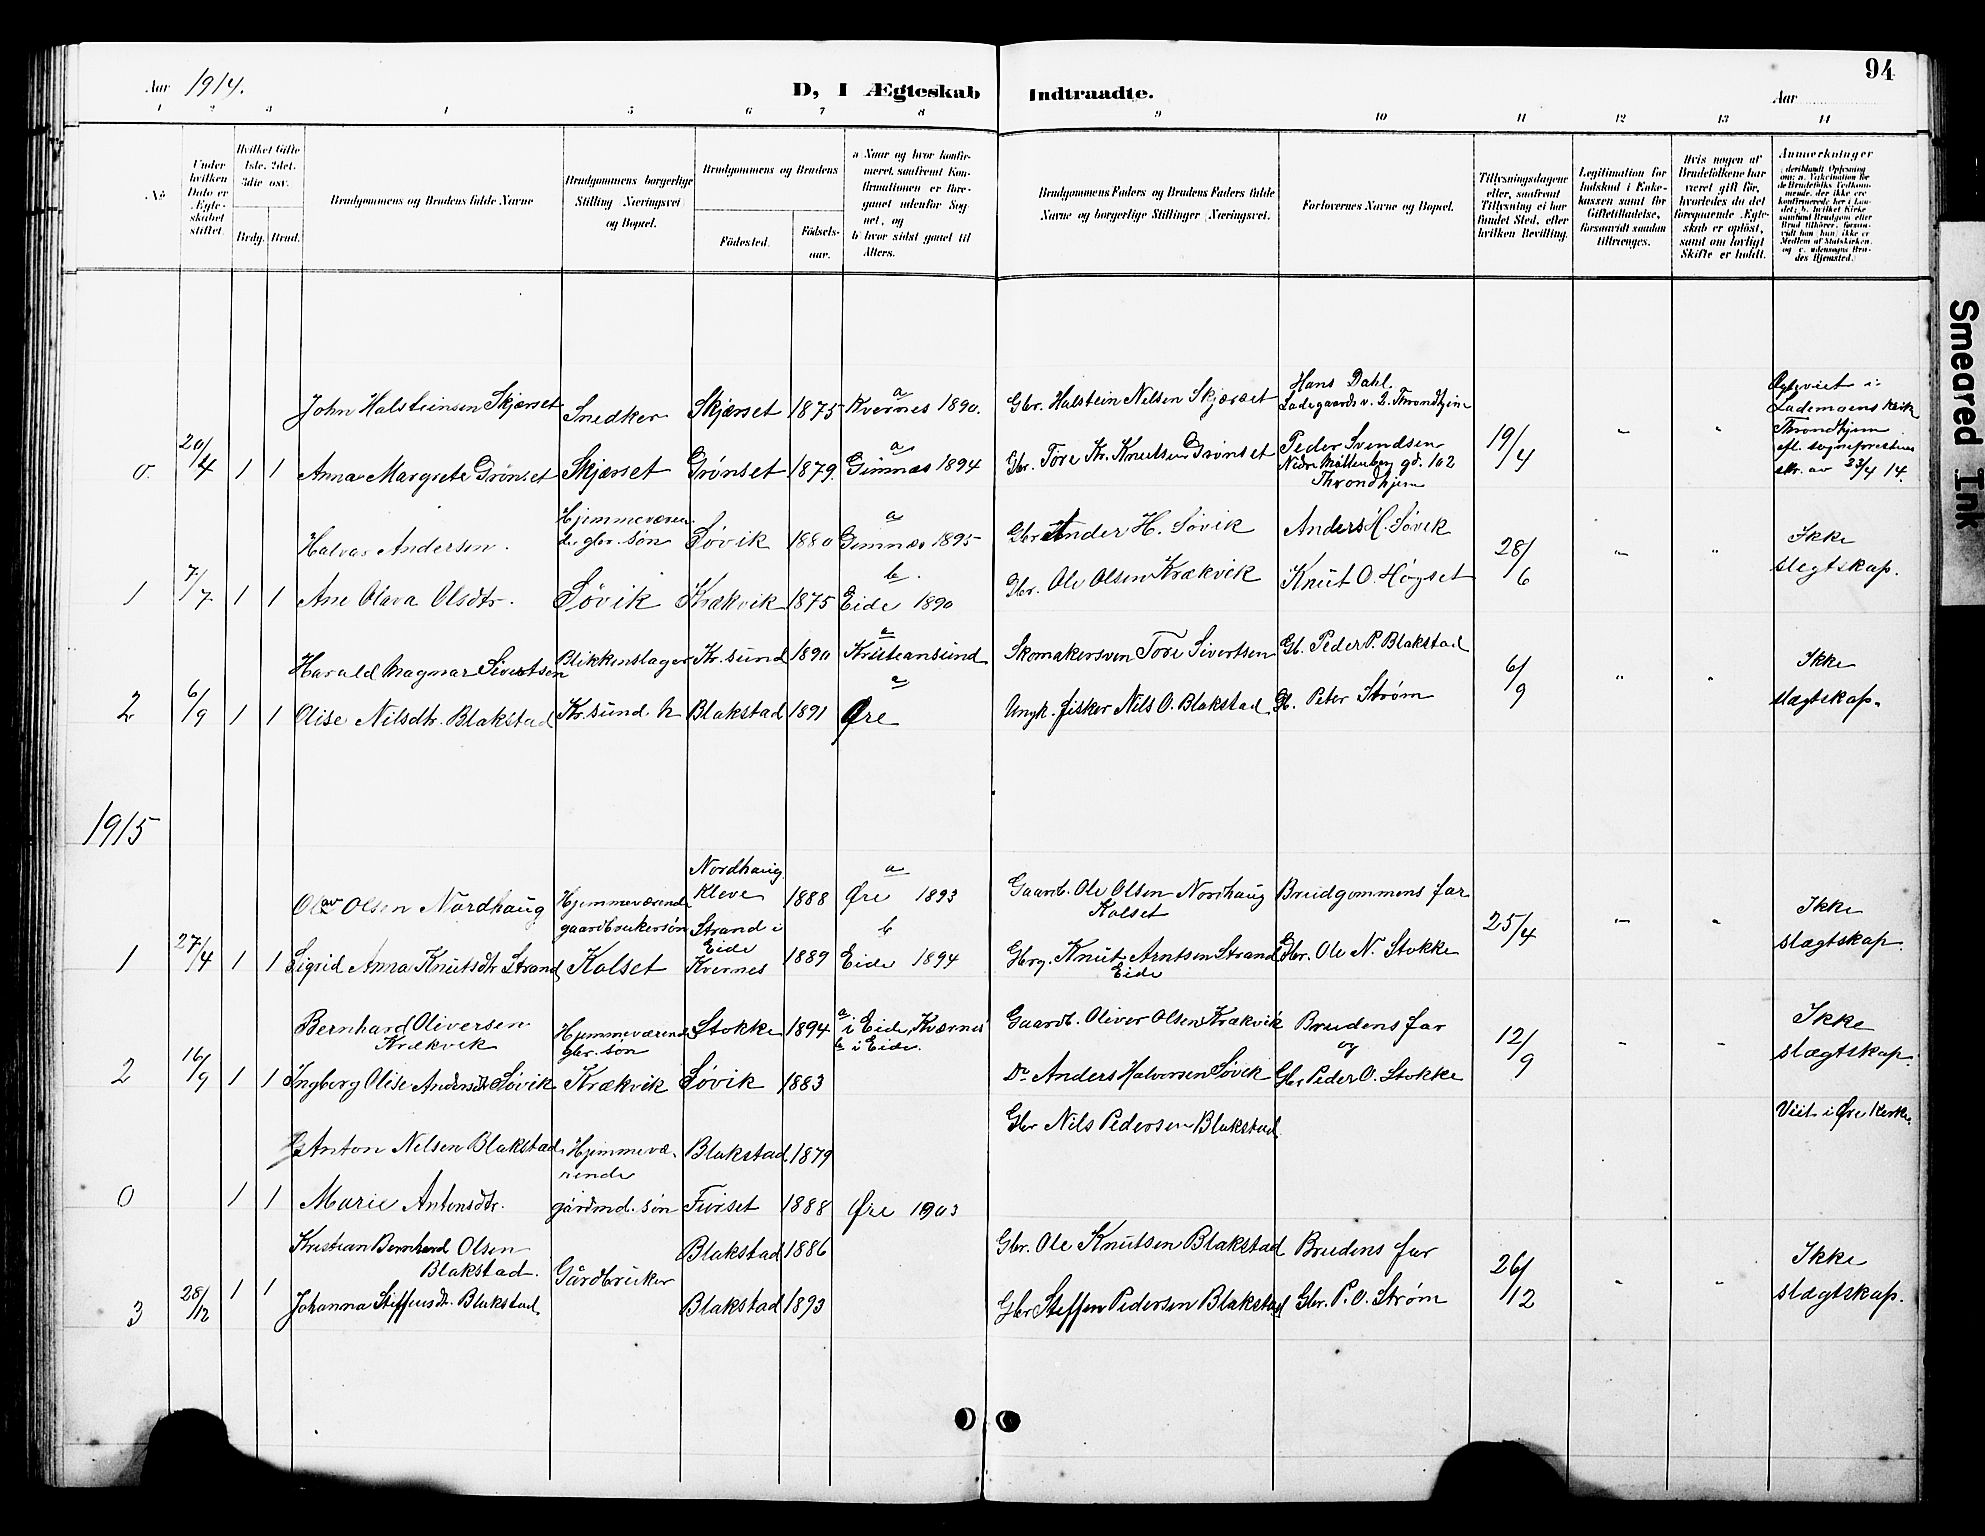 94
Aar 1914.
D, I Ægteskab Indtraadte.
Aar
1 2 3 4 5 6 7 8 9 10 11 12 13 14
No.
Under hvilken Dato er Ægteskabet stiftet.
Hvilket Gifte 1ste. 2det. 3die osv.
Brdg. Brud.
Brudgommens og Brudens fulde Navne
Brudgommens borgerlige Stilling (Næringsvei) og Bopæl.
Brudgommens og Brudens
Födested. Födselsaar.
a Naar og hvor konfirmeret, samfremt Konfirmationen er foregaaet udenfor Sognet, og
b hvor sidst gaaet til Alters.
Brudgommens Faders og Brudens Faders fulde Navne og borgerlige Stillinger (Næringsvei).
Forlovernes Navne og Bopæl.
Tillysningsdagene eller, samfremt Tillysning ei har fundet Sted, efter hvilken Bevilling.
Legitimation for Indskud i Enkekassen samt for Giftetilladelse, forsaavidt saadan tiltrænges.
Hvis nogen af Brudefolkene har været gift för, hvorledes da det foregaaende Ægteskab er oplöst, samt om lovligt Skifte er holdt.
Anmærkninger
John Halsteinsen Skjærset Snedker Skjærset 1875 a Kvernes 1890. Gbr. Halstein Nilsen Skjærset Hans Dahl. Ladegaardsv. 2. Throndhjem
0. 20/4 1 1 Anna Margrete Grønset Skjærset Grønset 1879. a Gimnæs 1894 Gbr. Tore Kr. Knutsen Grønset Peder Svendsen Nedre Møllenberg gd. 102 Throndhjem 19/4 " "
Egteviet i Lademoens kirke Throndhjem efl. sogneprestens skr. av 23/4 14.
Halvar Andersen. Hjemmeværende gbr. søn Søvik 1880 a Gimnæs 1895 Gbr. Ander H. Søvik Anders H. Søvik
1 7/7 1 1 Ane Olava Olsdtr. Søvik Krækvik 1875 b. Eide 1890 Gbr. Ole Olsen Krækvik Knut O. Høgset 28/6 " " Ikke slegtskap.
Harald Magnar Sivertsen Blikkenslager Kr.sund 1890 a Kristiansund Skomakersven Tore Sivertsen Gb. Peder P. Blakstad
2 6/9 1 1 Olise Nilsdtr. Blakstad Kr.sund. N Blakstad 1891 a Øre Ungk. fisker Nils O. Blakstad. Gb. Peter Strøm 6/9 " " Ikke slægtskap.
1915
Olav Olsen Nordhaug Hjemmeværende gaardbrukersøn Nordhaug Kleve 1888 a Øre 1893 Gaardb. Ole Olsen Nordhaug Kolset Brudgommens far
1 27/4 1 1 Sigrid Anna Knutsdtr Strand Kolset Strand i Eide Kvernes 1889 b Eide 1894 Gbrg. Knut Arntsen Strand Eide Gbr. Ole N. Stokke 25/4 " " Ikke slægtskap.
Bernhard Oliversen Krækvik Hjemmeværende gbr. søn Stokke 1894 a i Eide, Kværnes b i Eide. Gaardb. Oliver Olsen Krækvik Brudens far og
2 16/9 1 1 Ingborg Olise Andersdtr Søvik Krækvik Søvik 1883 Do Anders Halvorsen Søvik Gbr Peder O. Stokke 12/9 " " Ikke slægtskap.
Anton Nilsen Blakstad Hjemmeværende Blakstad 1879 Gbr Nils Pedersen Blakstad Viet i Øre Kirke
0 1 1 Marie Antonsdtr. gårdmd. søn Furset 1888 Øre 1903
Kristian Bernhard Olsen Blakstad. Gårdbruker Blakstad 1886 Gbr. Ole Knutsen Blakstad Brudens far
3 28/12 1 1 Johanna Steffensdtr. Blakstad Blakstad 1893 Gbr Steffen Pedersen Blakstad Gbr. P. O. Strøm 26/12 " " Ikke slægtskap.
Smeared Ink